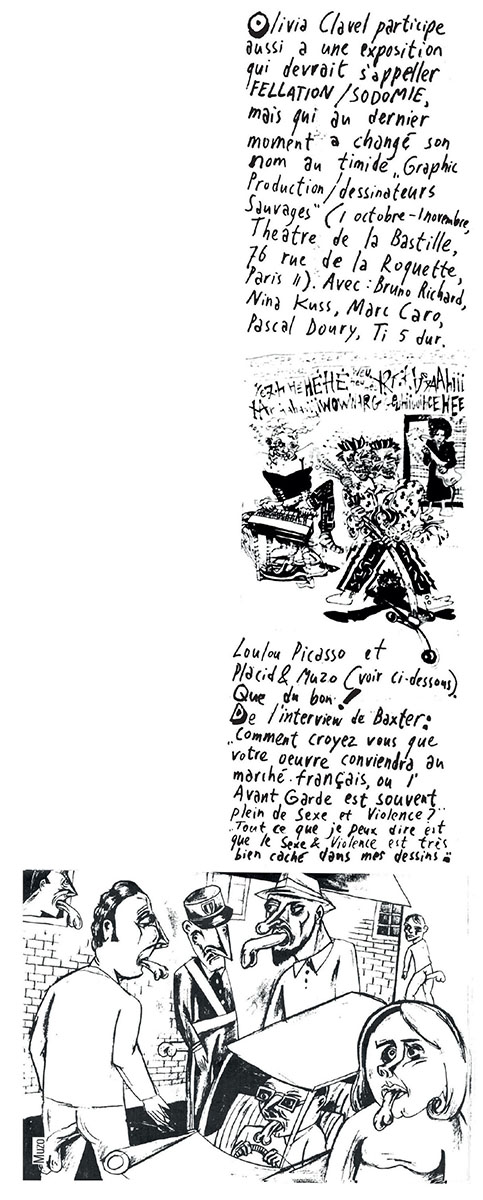 Olivia Clavel participe
aussi a une exposition
qui devrait s'appeller
FELLATION/SODOMIE,
mais qui au dernier
moment a changé son
nom au timide „Graphic
Production/dessinateurs
Sauvages" (1 octobre-1 novembre,
Theatre de la Bastille,
76 rue de la Roquette,
Paris 11). Avec: Bruno Richard,
Nina Kuss, Marc Caro,
Pascal Doury, Ti 5 dur.
Loulou Picasso et
Placid & Muzo (voir ci-dessous).
Que du bon!
De l'interview de Baxter:
„Comment croyez vous que
votre oeuvre conviendra au
marché français, ou l'
Avant Garde est souvent
plein de Sexe et Violence?"
„Tout ce que je peux dire est
que le Sexe & Violence est très
bien caché dans mes dessins."
Muzo